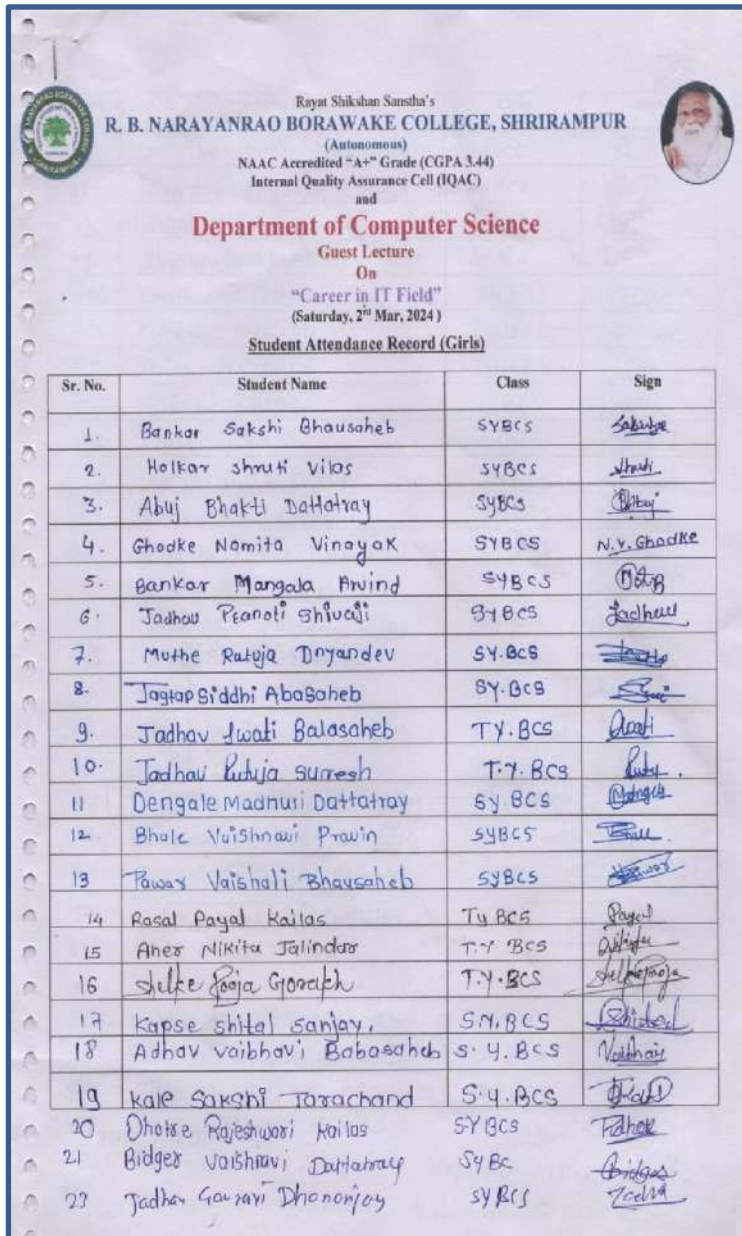 Rayat Shikshan Sanstha's
R. B. NARAYANRAO BORAWAKE COLLEGE, SHRIRAMPUR
(Autonomous)
NAAC Accredited "A+" Grade (CGPA 3.44)
Internal Quality Assurance Cell (IQAC)
and
Department of Computer Science
Guest Lecture
On
"Career in IT Field"
(Saturday, 2rd Mar, 2024 )
Student Attendance Record (Girls)
Sr. No. Student Name Class Sign
1. Bankar Sakshi Bhausaheb SYBCS
2. Holkar Shruti Vilas SYBCS
3. Abuj Bhakti Dattatray SyBCS
4. Ghodke Namita Vinayak SYBCS N.V. Ghodke
5. Bankar Mangala Arvind SYBCS
6. Jadhav Shivaji SYBCS Jadhav
7. Muthe Rutuja Dnyandev SY.BCS
8. Jagtap Siddhi Abasaheb SY.BCS
9. Jadhav Swati Balasaheb TY.BCS
10. Jadhav Rutuja suresh T.Y.BCS
11 Dengale Madhuri Dattatray Sy.BCS
12 Bhale Vaishnavi Pravin SYBCS
13 Pawar Vaishali Bhausaheb SYBCS
14 Rasal Payal Kailas Ty BCS Payal
15 Aher Nikita Jalindar T.Y BCS
16 Shelke Pooja Gorakh T.Y.BCS Shelkepooja
17 Kapse shital sanjay. S.Y.BCS
18 Adhav vaibhavi Babasaheb S.Y.BCS
19 kale Sakshi Tarachand S.Y.BCS
20 Dhotre Rajeshwari Kailas SYBCS
21 Vaishnavi Dattatray SyBc
23 Jadhav Gauravi Dhananjay SYBCS